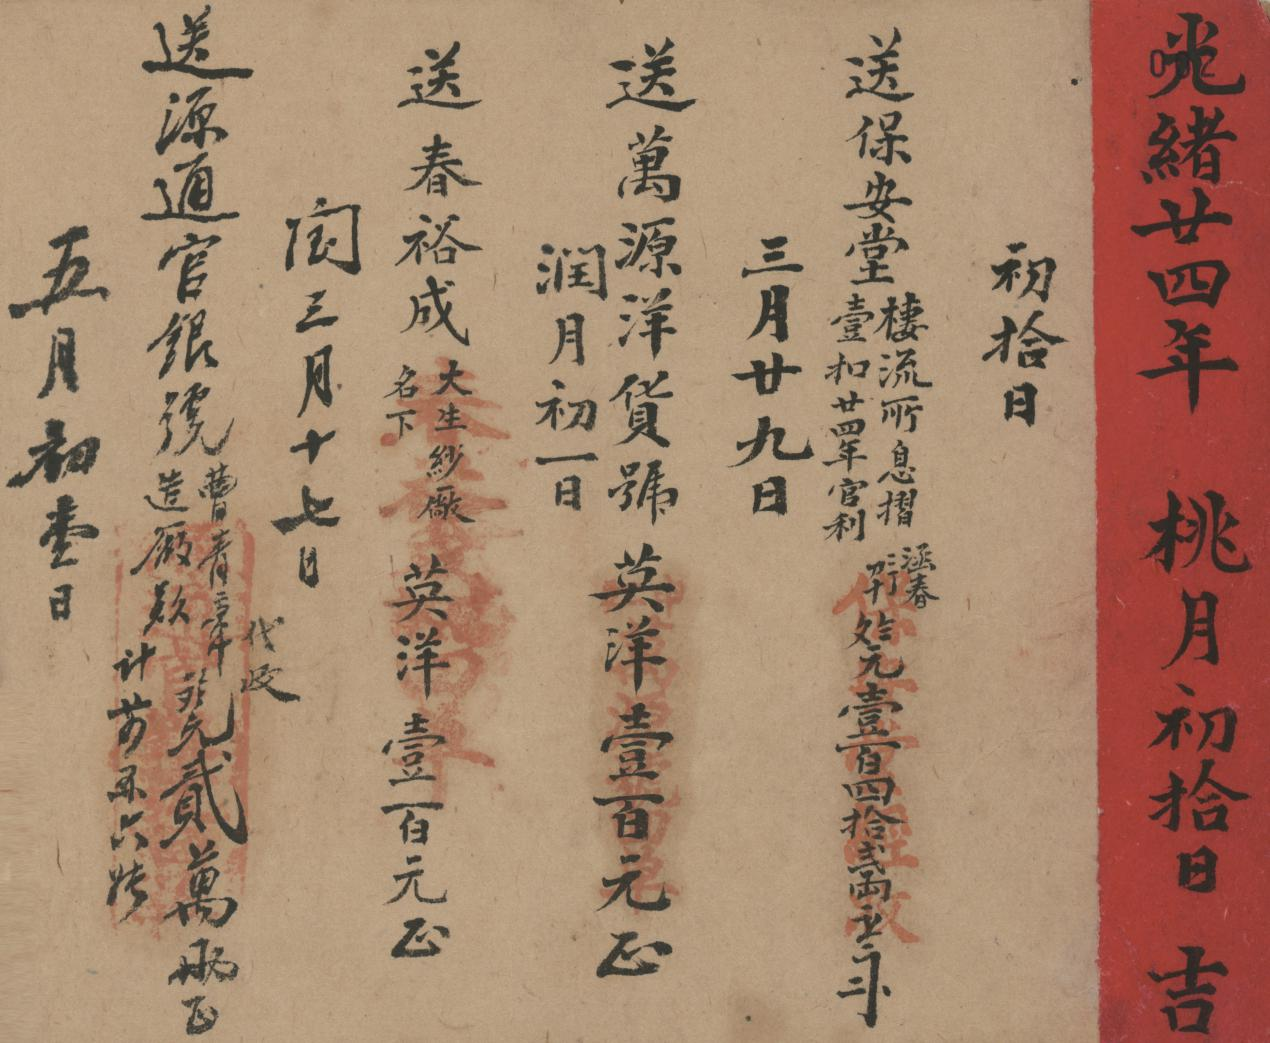 光緒廿四年 桃月初拾日 吉
初拾日
送保安堂
棲流所息摺
壹扣廿四年官利
涵春
元壹百四拾弍両
三月廿九日
送萬源洋貨號 英洋壹百元正
润月初一日
送春裕成
大生紗廠
名下
英洋壹百元正
閏三月十七日
送源通官銀號
曹青章
造厰款
代收
貳萬両正
五月初壹日